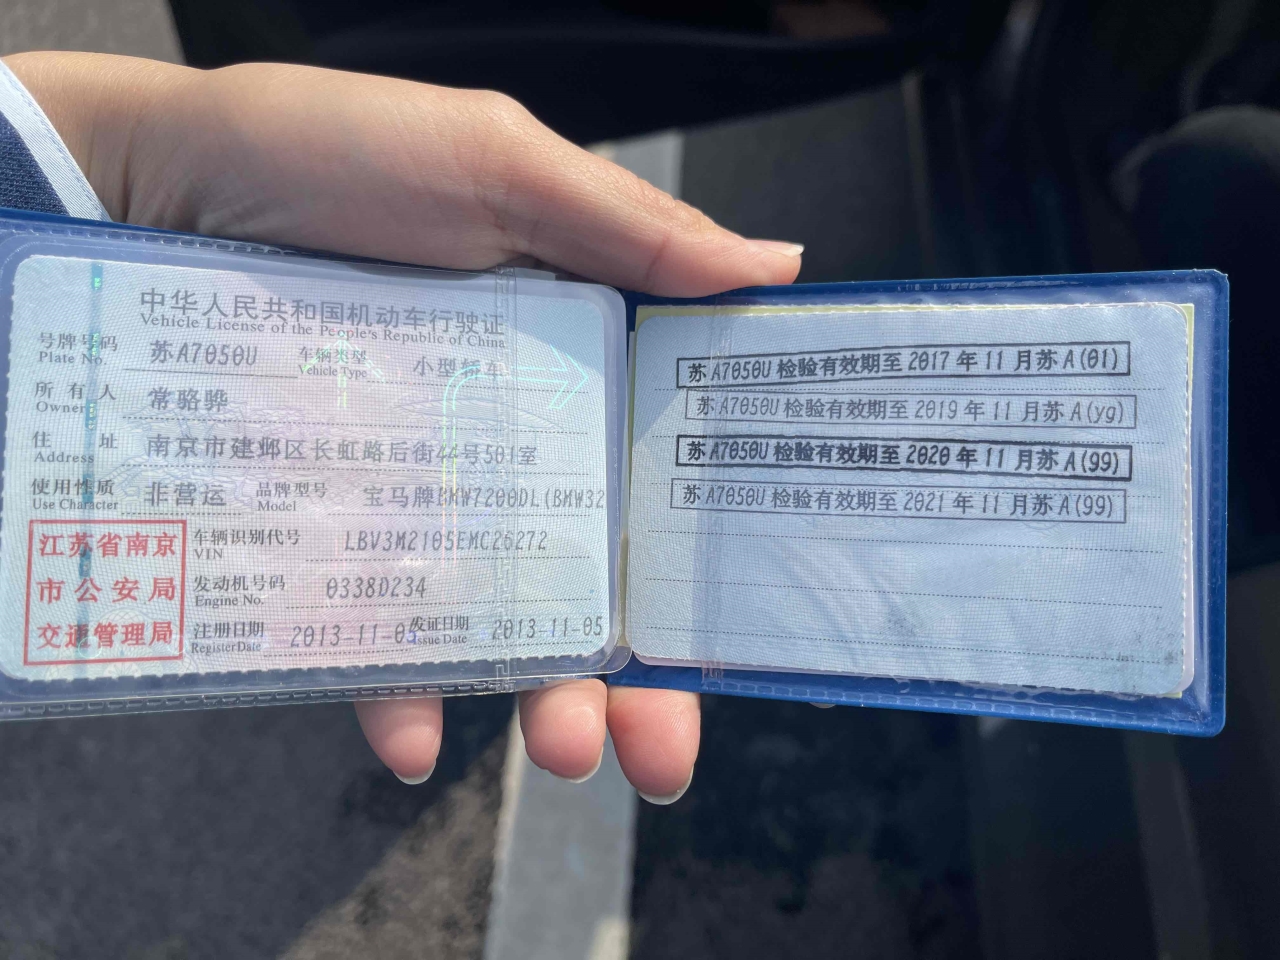 中华人民共和国机动车行驶证
Vehicle License of the People's Republic of China
号牌号码 苏A7050U 车辆类型 小型轿车
Plate No. Vehicle Type
所有人 常骆骅
Owner
住址 南京市建邺区长虹路后街44号501室
Address
使用性质 非营运 品牌型号 宝马牌BMW7200DL(BMW32
Use Character Model
江苏省南京
市公安局
交通管理局
车辆识别代号 LBV3M2105EMC26272
VIN
发动机号码 0338D234
Engine No.
注册日期 2013-11-05 发证日期 2013-11-05
Register Date Issue Date
苏A7050U检验有效期至2017年11月苏A(01)
苏A7050U检验有效期至2019年11月苏A(yg)
苏A7050U检验有效期至2020年11月苏A(99)
苏A7050U检验有效期至2021年11月苏A(99)